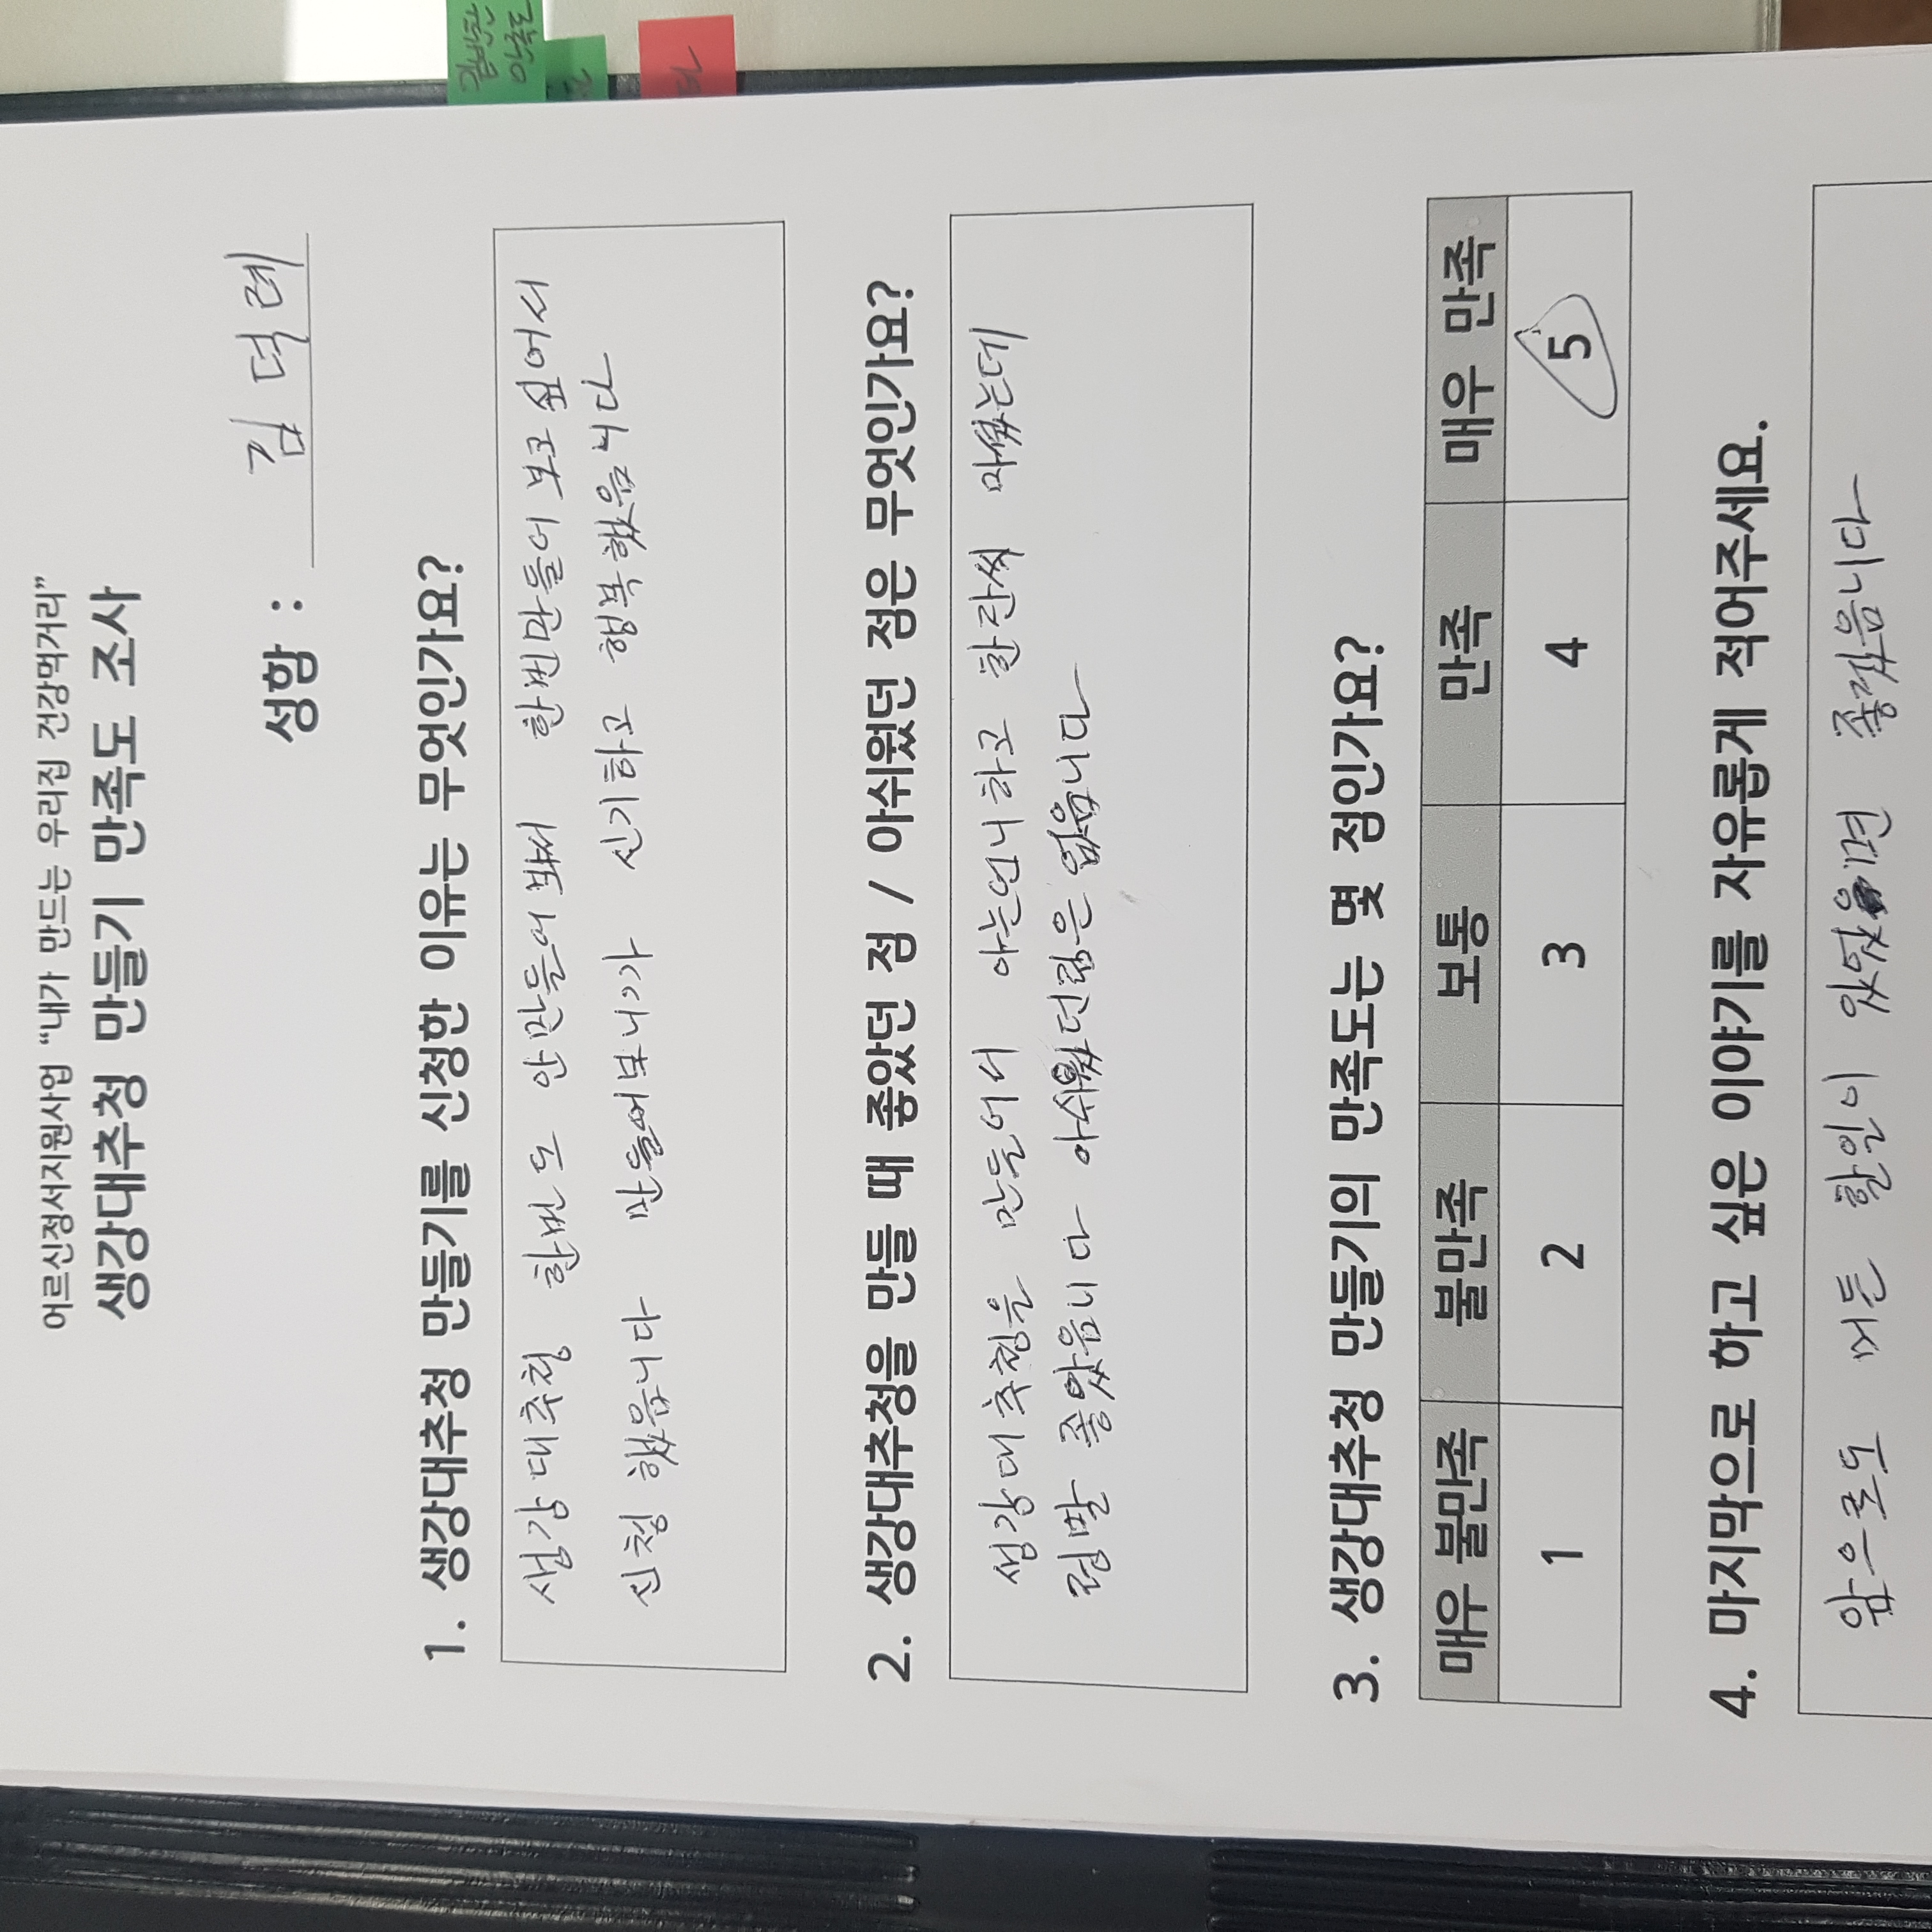 어르신정서지원사업 “내가 만드는 우리집 건강먹거리”
생강대추청 만들기 만족도 조사
성함 : 김덕례
1. 생강대추청 만들기를 신청한 이유는 무엇인가요?
생강대추청 한번도 안만들어봐서 한번만들어 보고 싶어서
신청 했읍니다 만들어보니가 신기하고 행복했읍니다
2. 생강대추청을 만들 때 좋았던 점 / 아쉬웠던 점은 무엇인가요?
생강대추청을 만들어서 아는언니하고 한잔씩 마셨는데
정말 좋았읍니다 아쉬웠던점은 없읍니다
3. 생강대추청 만들기의 만족도는 몇 점인가요?
매우 불만족 불만족 보통 만족 매우 만족
1 2 3 4 5
4. 마지막으로 하고 싶은 이야기를 자유롭게 적어주세요.
앞으로도 할일이 있었으면 좋겠읍니다